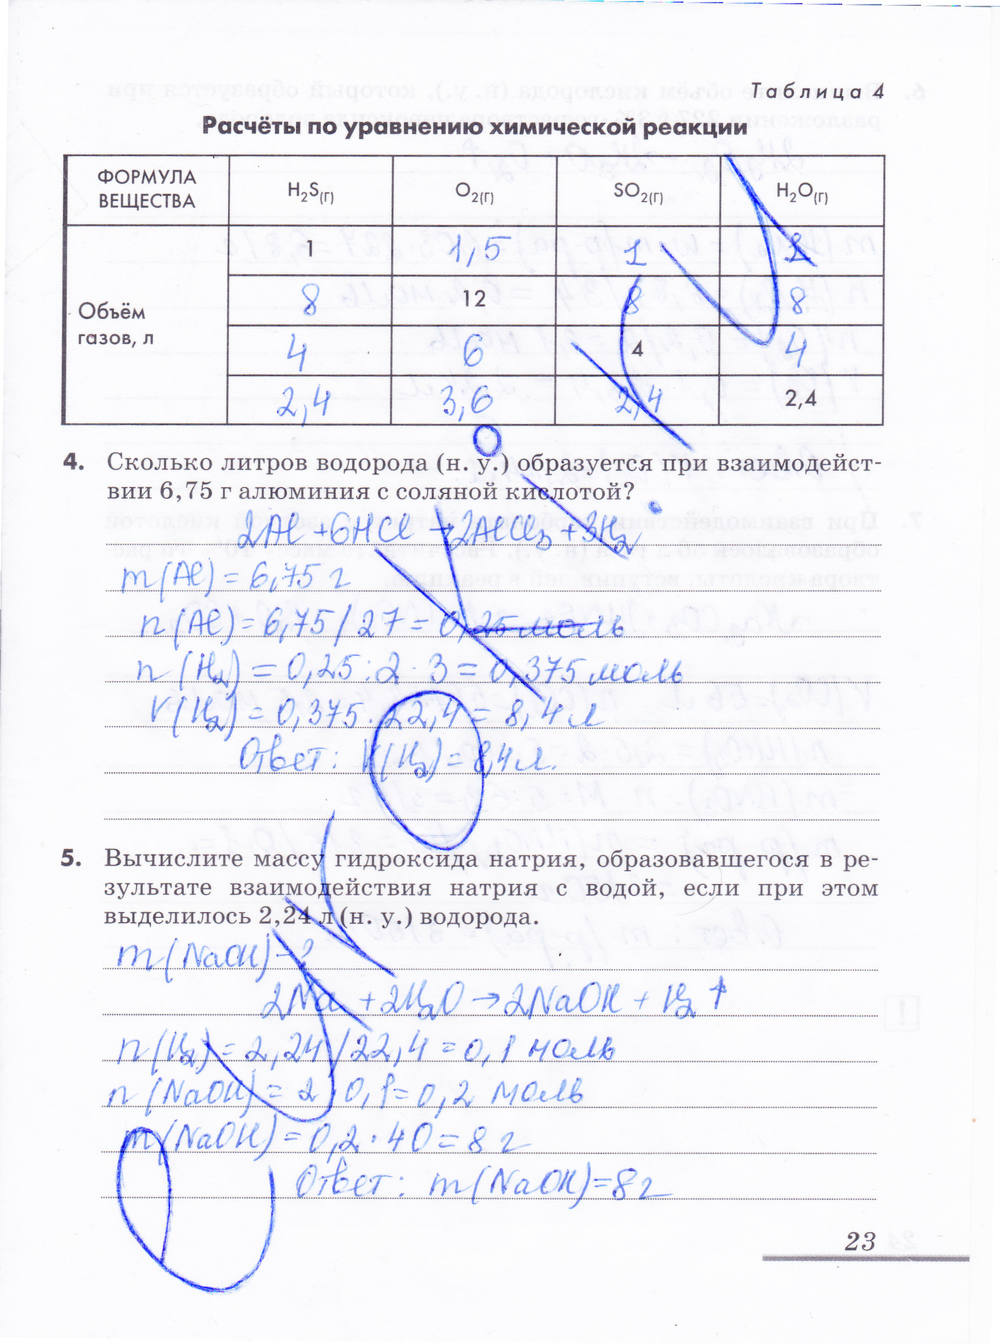 Таблица 4
Расчёты по уравнению химической реакции
ФОРМУЛА ВЕЩЕСТВА H₂S(г) O₂(г) SO₂(г) H₂O(г)
Объём газов, л
1 1,5 1 1
8 12 8 8
4 6 4 4
2,4 3,6 2,4 2,4
4. Сколько литров водорода (н. у.) образуется при взаимодейст-
вии 6,75 г алюминия с соляной кислотой?
2Al + 6HCl → 2AlCl₃ + 3H₂
m(Al) = 6,75 г
n(Al) = 6,75/27 = 0,25 моль
n(H₂) = 0,25 : 2 · 3 = 0,375 моль
V(H₂) = 0,375 · 22,4 = 8,4 л
Ответ: V(H₂) = 8,4 л.
5. Вычислите массу гидроксида натрия, образовавшегося в ре-
зультате взаимодействия натрия с водой, если при этом
выделилось 2,24 л (н. у.) водорода.
m(NaOH) - ?
2Na + 2H₂O → 2NaOH + H₂ ↑
n(H₂) = 2,24/22,4 = 0,1 моль
n(NaOH) = 2 · 0,1 = 0,2 моль
m(NaOH) = 0,2 · 40 = 8 г
Ответ: m(NaOH) = 8 г
23